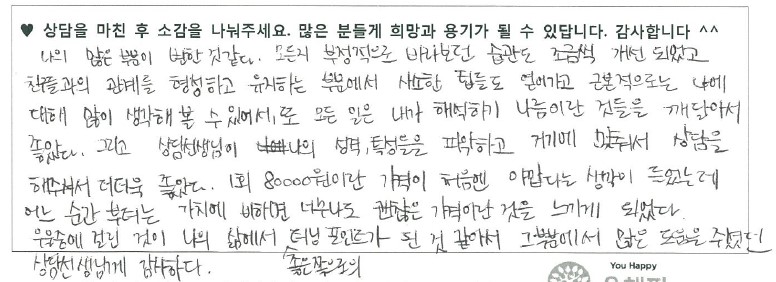 ♥ 상담을 마친 후 소감을 나눠주세요. 많은 분들게 희망과 용기가 될 수 있답니다. 감사합니다 ^^
나의 많은 부분이 변한 것같다. 모든지 부정적으로 바라보던 습관도 조금씩 개선 되었고
친구들과의 관계를 형성하고 유지하는 부분에서 사소한 팁들도 얻어가고 근본적으로는 나에
대해 많이 생각해 볼 수 있어서, 또 모든 일은 내가 해석하기 나름이란 것들을 깨달아서
좋았다. 그리고 상담선생님이 나의 성격, 특성들을 파악하고 거기에 맞춰서 상담을
해주셔서 더더욱 좋았다. 1회 80000원이란 가격이 처음엔 아깝다는 생각이 들었는데
어느 순간 부터는 가치에 비하면 너무나도 괜찮은 가격이란 것을 느끼게 되었다.
우울증에 걸린 것이 나의 삶에서 터닝 포인트가 된 것 같아서 그부분에서 많은 도움을 주셨던
상담선생님께 감사하다. 좋은쪽으로의
You Happy